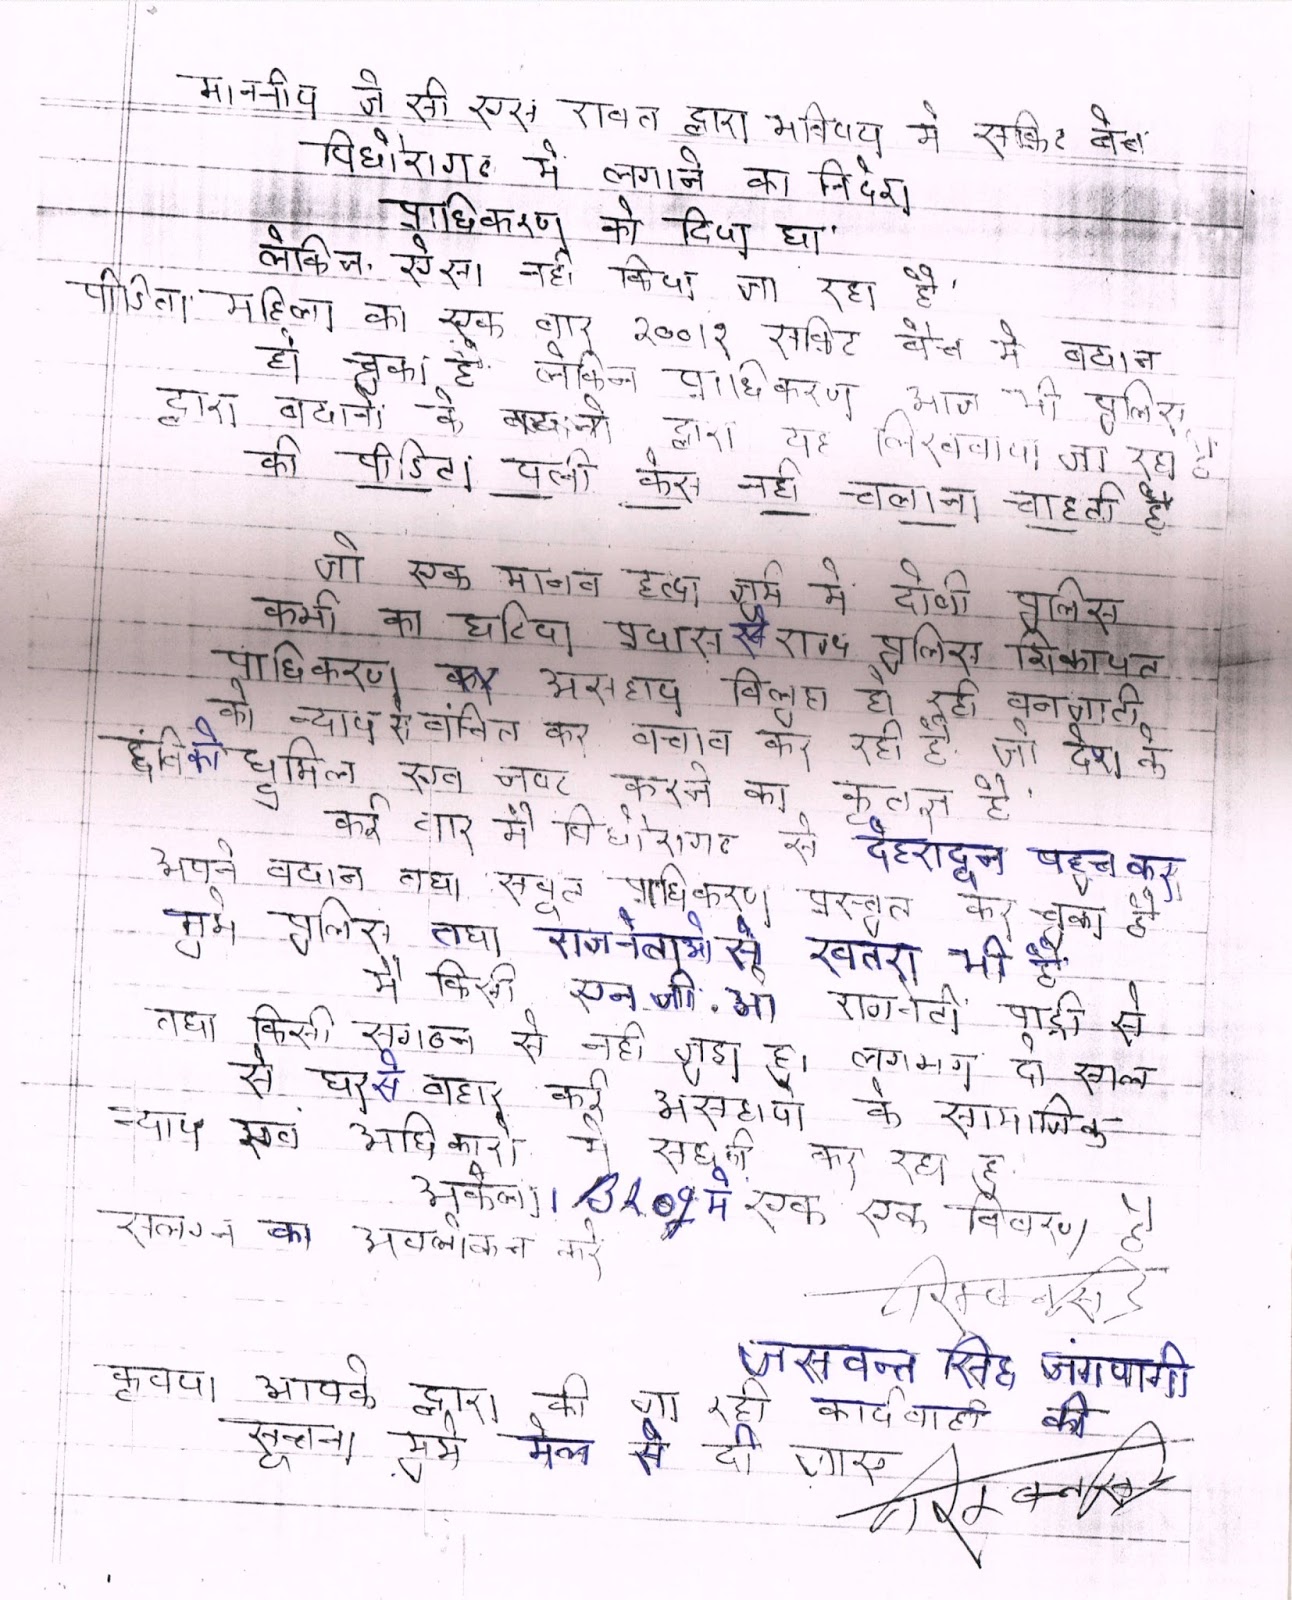 माननीय जे सी एस रावत द्वारा भविष्य मे सर्किट बेंच
पिथौरागढ मे लगाने का निर्देश
प्राधिकरण को दिया था
लेकिन ऐसा नही किया जा रहा है
पीडिता महिला का एक बार २००१२ सर्किट बैंच मे बयान
हो चुका है लेकिन प्राधिकरण आज भी पुलिस
द्वारा बयानो के द्वारा यह लिखवाया जा रहा है
की पीडिता पत्नी केस नही चलाना चाहती है
जो एक मानव हत्या जुर्म मे दोषी पुलिस
कर्मी का घटिया प्रयास से राज्य पुलिस शिकायत
प्राधिकरण असहाय विलुप्त हो रही वनजाती
को न्याय से वंचित कर बचाव कर रही है जो देश के
छवि को धुमिल एवं नष्ट करने का कृतज्ञ है
कई बार मै पिथौरागढ से देहरादून पहुच कर
अपने बयान तथा सबूत प्राधिकरण प्रस्तुत कर चुका है
मुझे पुलिस तथा राजनेताओ से खतरा भी है
मै किसी एन.जी.ओ राजनेती पार्टी से
तथा किसी सगठन से नही जुडा हू। लगभग दो साल
से घर से बाहार कई असहायो के सामाजिक
न्याय एवं अधिकारो मे सघर्ष कर रहा हू
अकेला। Blog मे एक एक विवरण है
सलग्न का अवलोकन करे
जसवन्त सिंह जंगपांगी
कृपया आपके द्वारा की जा रही कार्यवाही की
सूचना मुझे मेल से दी जाए